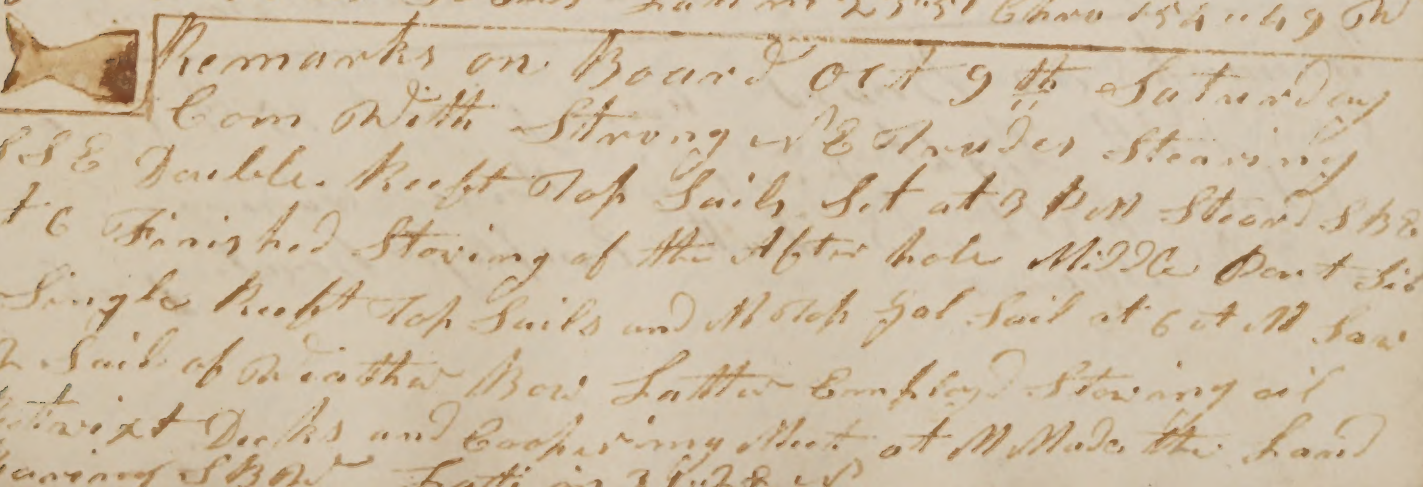 Latt in 25:51 Chro 154 " 49 W
Remarks on Board Oct 9th Saturday
Com With Strong N E Trades Stearing
S S E Double Reeft Top Sails Set at 3 P M Steard S B E
At 6 Finished Stoving of the After hole Middle Part Sit
Single Reeft Top Sails and M Top Gal Sail at 6 A M Saw
a Sail of Weather Bow Latter Employd Stowing oil
betwixt Decks and Coopering Meet at M Made the Land
bearing S B W Latt in 21:28 N